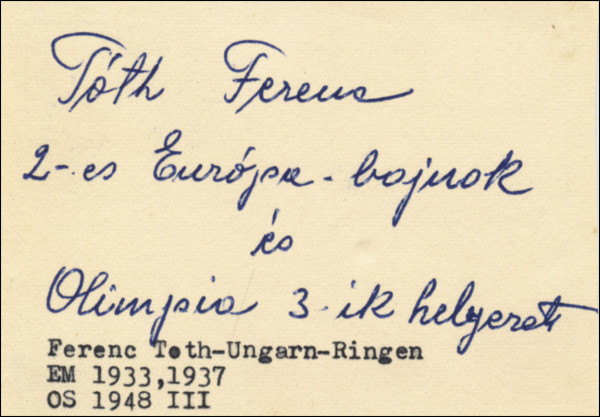 Tóth Ferenc
2-es Európa-bajnok
és
Olimpia 3-ik helyezett
Ferenc Toth-Ungarn-Ringen
EM 1933,1937
OS 1948 III